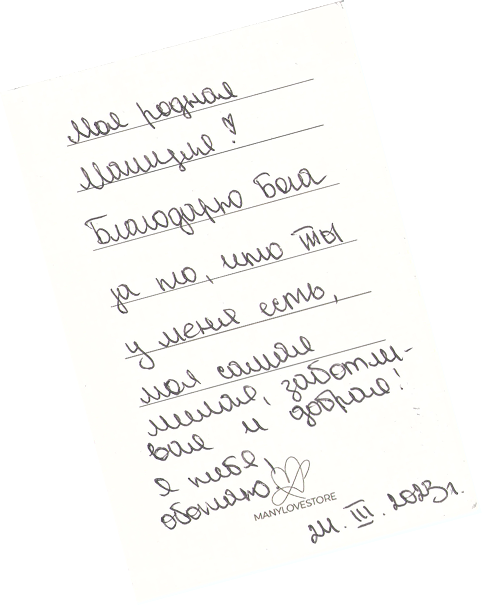 Моя родная
Мамуля!
Благодарю Бога
за то, что ты
у меня есть,
моя самая
милая, заботли-
вая и добрая!
я тебя
обожаю!
MANYLOVESTORE
24. III. 2023г.